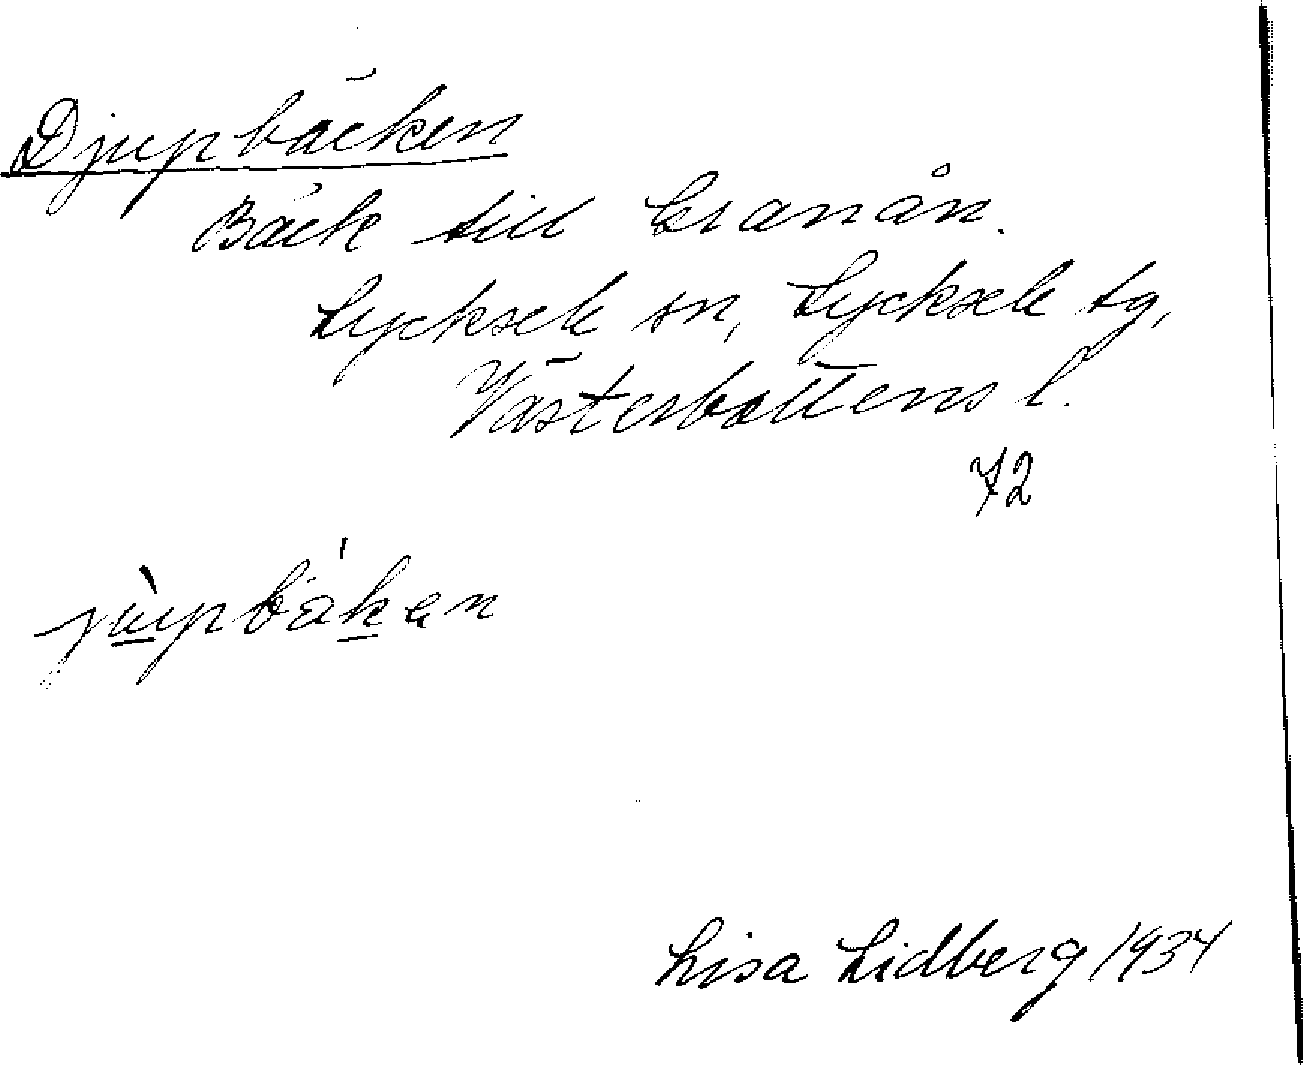 Djupbäcken
Bäck till Granån.
Lycksele sn, Lycksele tg,
Västerbottens l.
72
Lisa Lidberg 1934